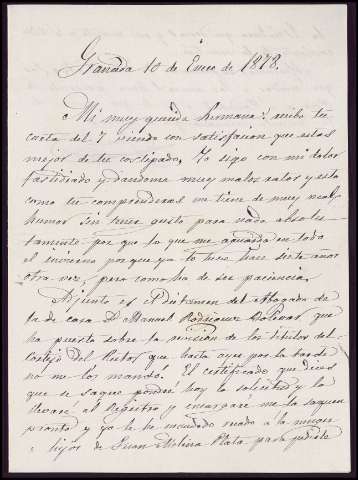 Granada 10 de Enero de 1878.
Mi muy querida hermana: recibo tu
carta del 7 viendo con satisfacion que estas
mejor de tu costipado, Yo sigo con mi dolor
fastidiado y dandome muy malos ratos y esto
como tu comprenderas me tiene de muy mal
humor sin tener gusto para nada absolu-
tamente por que lo que me aguarda en todo
el invierno porque ya lo tuve hace siete años
otra vez, pero como ha de ser paciencia.
Adjunto es el Dictamen del Abogado de
la de casa D. Manuel Rodriguez Bolivar que
ha puesto sobre la revision de los titulos del
Cortijo del Rector que hasta ayer por la tarde
no me los mandó. El certificado que dices
que se saque pondré hoy la solicitud y la
llevaré al Registro y encargaré me la saquen
pronto y ya le he mandado recado a la
hijos de Juan Molina Plata para pedirle